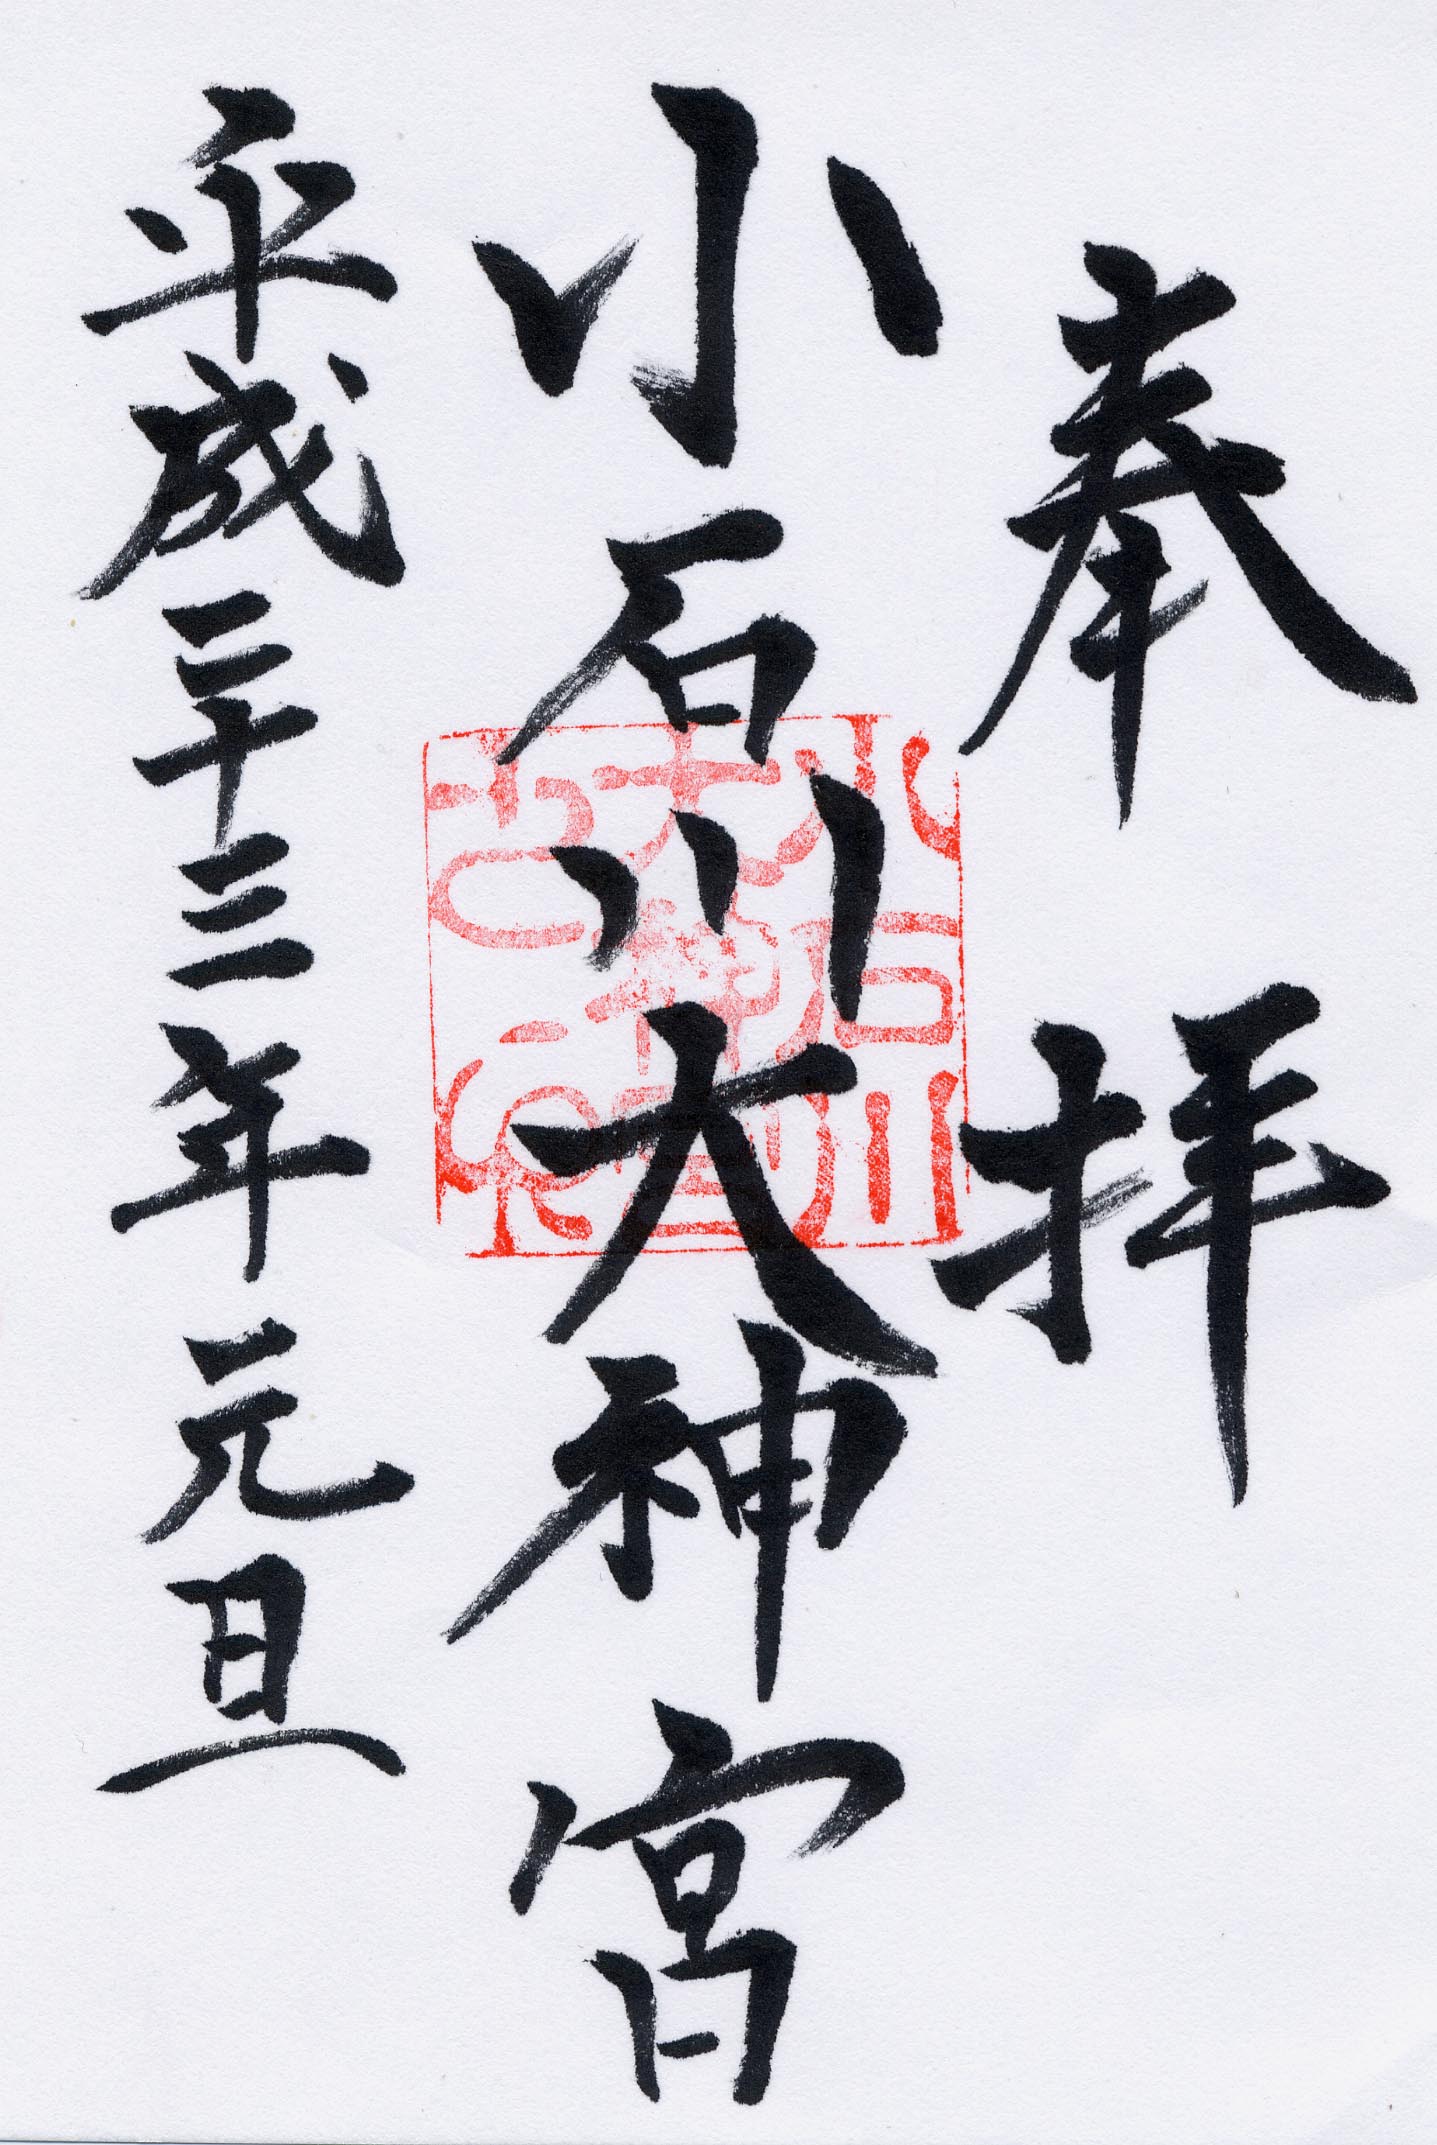 奉拝
小石川大神宮
平成二十三年元旦
小石川
大神宮